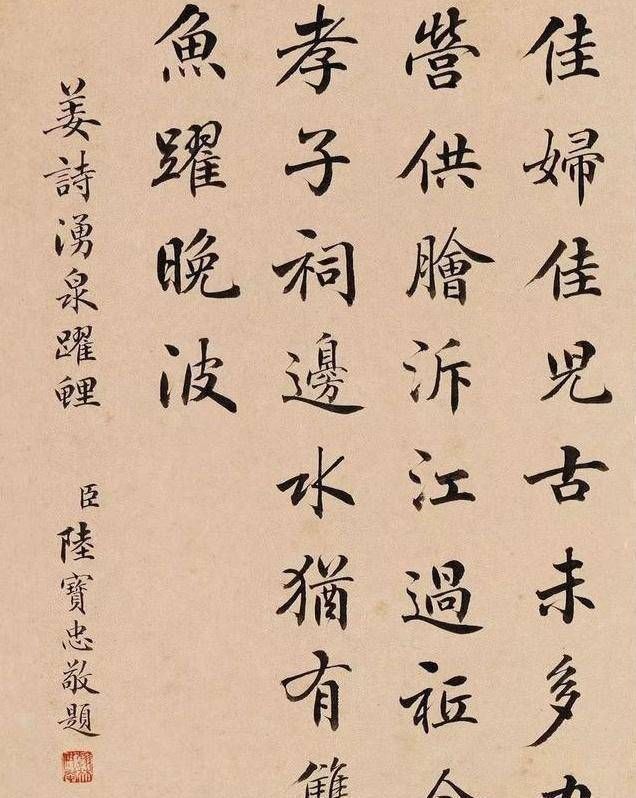 佳婦佳兒古未多
營供膾泝江過祗今
孝子祠邊水猶有雙
魚躍晚波
姜詩湧泉躍鯉
臣陸寶忠敬題